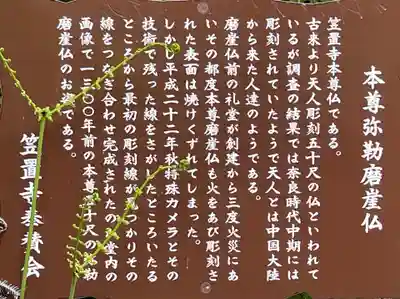 本尊弥勒磨崖仏
笠置寺本尊仏である。
古来より天人彫刻五十尺の仏といわれて
いるが調査の結果では奈良時代中期には
彫刻されていたようで天人とは中国大陸
から来た人達のようである。
磨崖仏前の礼堂が創建から三度火災にあ
いその都度本尊磨崖仏も火をあび彫刻さ
れた表面は焼けくずれてしまった。
しかし平成二十二年秋特殊カメラとその
技術で残った線をさがしたところいたる
ところから最初の彫刻線がみつかりその
線をつなぎ合わせ完成されたの 堂内の
画像で一三〇〇年前の本尊五十尺の弥勒
磨崖仏のお姿である。
笠置寺奉賛会